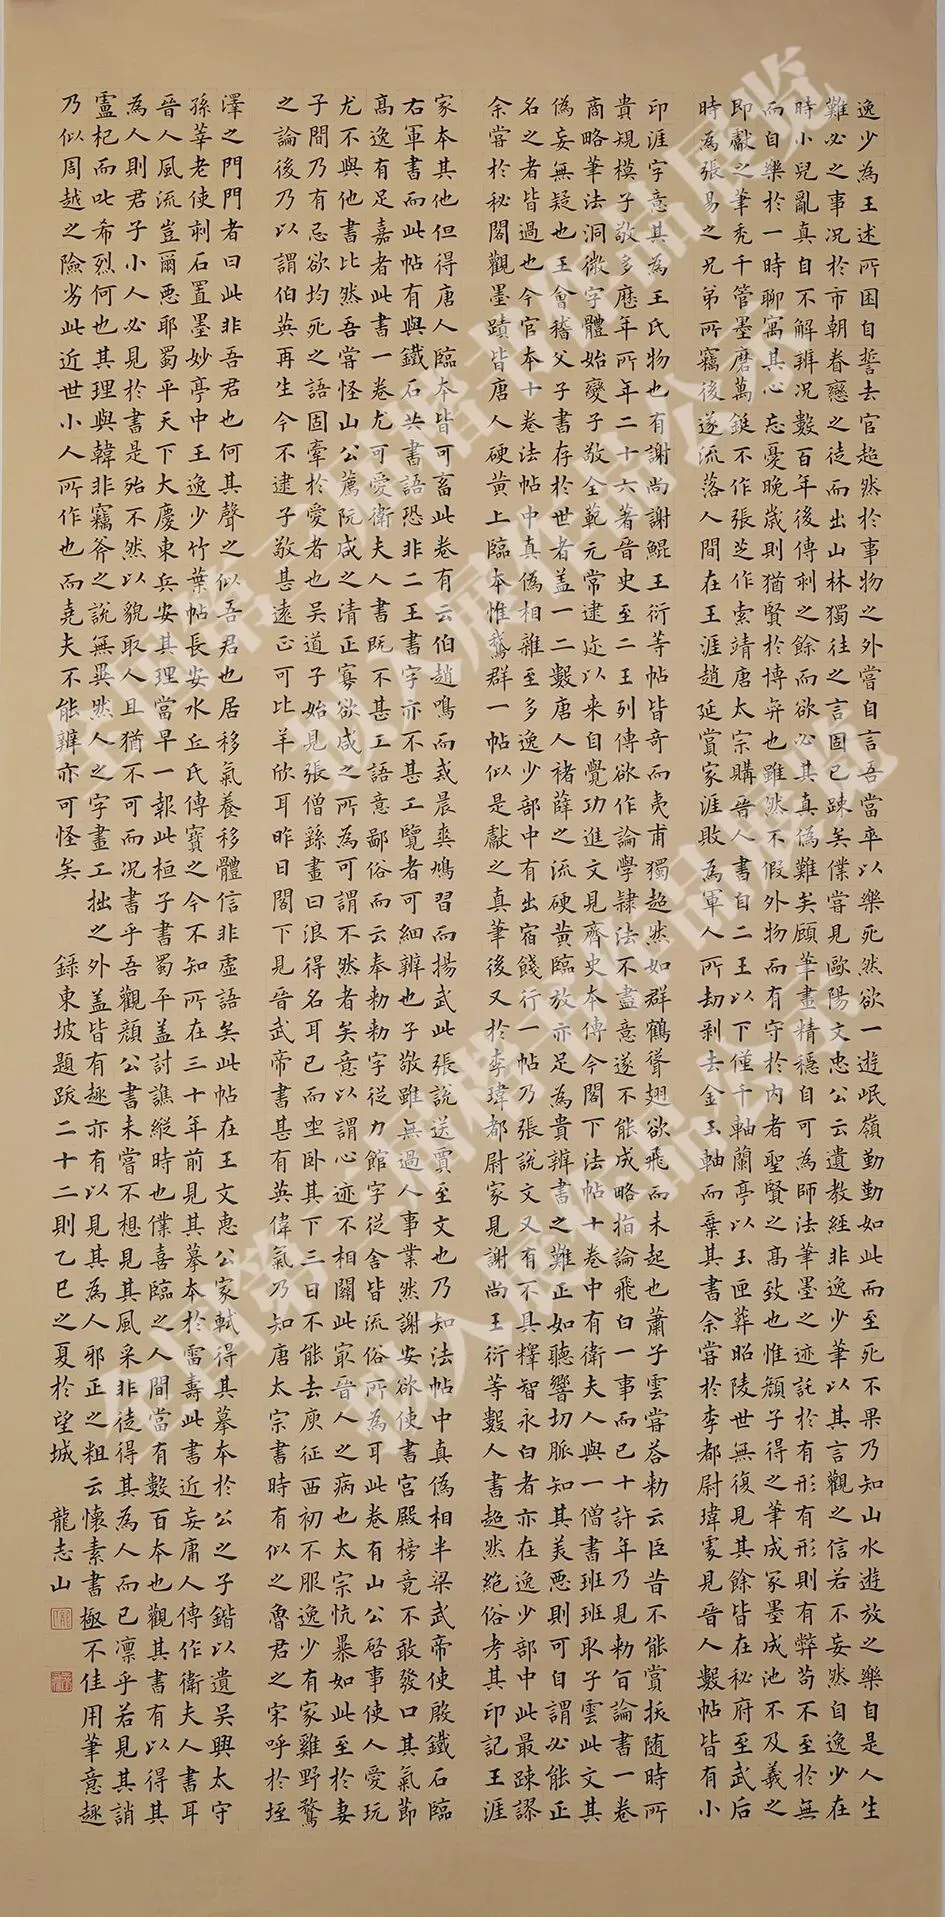 逸少為王述所困自誓去官超然於事物之外嘗自言吾當卒以樂死然欲一遊岷嶺勤勤如此而至死不果乃知山水遊放之樂自是人生
難必之事況於市朝眷戀之徒而出山林獨往之言固已踈矣僕嘗見歐陽文忠公云遺教經非逸少筆以其言觀之信若不妄然自逸少在
時小兒亂真自不解辨況數百年後傳刺之餘而欲必其真偽難矣顧筆畫精穩自可為師法筆墨之迹託於有形有形則有弊苟不至於無
而自樂於一時聊寓其心忘憂晚歲則猶賢於博弈也雖然不假外物而有守於內者聖賢之高致也惟顏子得之筆成冢墨成池不及羲之
即獻之筆禿千管墨磨萬鋌不作張芝作索靖唐太宗購晉人書自二王以下僅千軸蘭亭以玉匣葬昭陵世無復見其餘皆在秘府至武后
時為張易之兄弟所竊後遂流落人間在王涯趙延賞家涯敗為軍人所劫剥去金玉軸而棄其書余嘗於李都尉瑋處見晉人數帖皆有小
印涯字意其為王氏物也有謝尚謝鯤王衍等帖皆奇而夷甫獨超然如群鶴聳翅欲飛而未起也蕭子雲嘗荅勅云臣昔不能賞拔随時所
貴規模子敬多歷年所年二十六著晉史至二王列傳欲作論學隸法不盡意遂不能成略指論飛白一事而已十許年乃見勅旨論書一卷
商略筆法洞微字體始變子敬全範元常逮迹以来自覺功進文見齊史本傳今閣下法帖十卷中有衛夫人與一僧書班班取子雲此文其
偽妄無疑也王會稽父子書存於世者盖一二數唐人褚薛之流硬黄臨放亦足為貴辨書之難正如聽響切脈知其美惡則可自謂必能正
名之者皆過也今官本十卷法帖中真偽相雜至多逸少部中有出宿餞行一帖乃張說文又有不具釋智永白者亦在逸少部中此最踈謬
余嘗於秘閣觀墨蹟皆唐人硬黄上臨本惟鵝群一帖似是獻之真筆後又於李瑋都尉家見謝尚王衍等數人書超然絶俗考其印記王涯
家本其他但得唐人臨本皆可畜此卷有云伯趙鳴而戒晨爽鳩習而揚武此張說送賈至文也乃知法帖中真偽相半梁武帝使殷鐵石臨
右軍書而此帖有與鐵石共書語恐非二王書字亦不甚工覽者可細辨也子敬雖無過人事業然謝安欲使書宮殿榜竟不敢發口其氣節
高逸有足嘉者此書一卷尤可愛衛夫人書既不甚工語意鄙俗而云奉勅勅字從力館字從舍皆流俗所為耳此卷有山公啓事使人愛玩
尤不與他書比然吾嘗怪山公薦阮咸之清正寡欲咸之所為可謂不然者矣意以謂心迹不相關此冣晉人之病也太宗忼暴如此至於妻
子間乃有忌欲均死之語固牽於愛者也吴道子始見張僧繇畫曰浪得名耳已而坐卧其下三日不能去庾征西初不服逸少有家雞野鶩
之論後乃以謂伯英再生今不逮子敬甚遠正可比羊欣耳昨日閣下見晉武帝書甚有英偉氣乃知唐太宗書時有似之魯君之宋呼於垤
澤之門門者曰此非吾君也何其聲之似吾君也居移氣養移體信非虛語矣此帖在王文惠公家軾得其摹本於公之子鍇以遺吴興太守
孫莘老使刺石置墨妙亭中王逸少竹葉帖長安水丘氏傳寳之今不知所在三十年前見其摹本於雷壽此書近妄庸人傳作衛夫人書耳
晉人風流豈爾悪耶蜀平天下大慶東兵安其理當早一報此桓子書蜀平盖討譙縱時也僕喜臨之人間當有數百本也觀其書有以得其
為人則君子小人必見於書是殆不然以貌取人且猶不可而况書乎吾觀顏公書未嘗不想見其風采非徒得其為人而已凛乎若見其誚
盧杞而叱希烈何也其理與韓非竊斧之說無異然人之字畫工拙之外盖皆有趣亦有以見其為人邪正之粗云懷素書極不佳用筆意趣
乃似周越之險劣此近世小人所作也而堯夫不能辨亦可怪矣 錄東坡題跋二十二則乙巳之夏於望城 龍志山
全国第三届楷书作品展览
拟入展作品公示
全国第三届楷书作品展览
拟入展作品公示